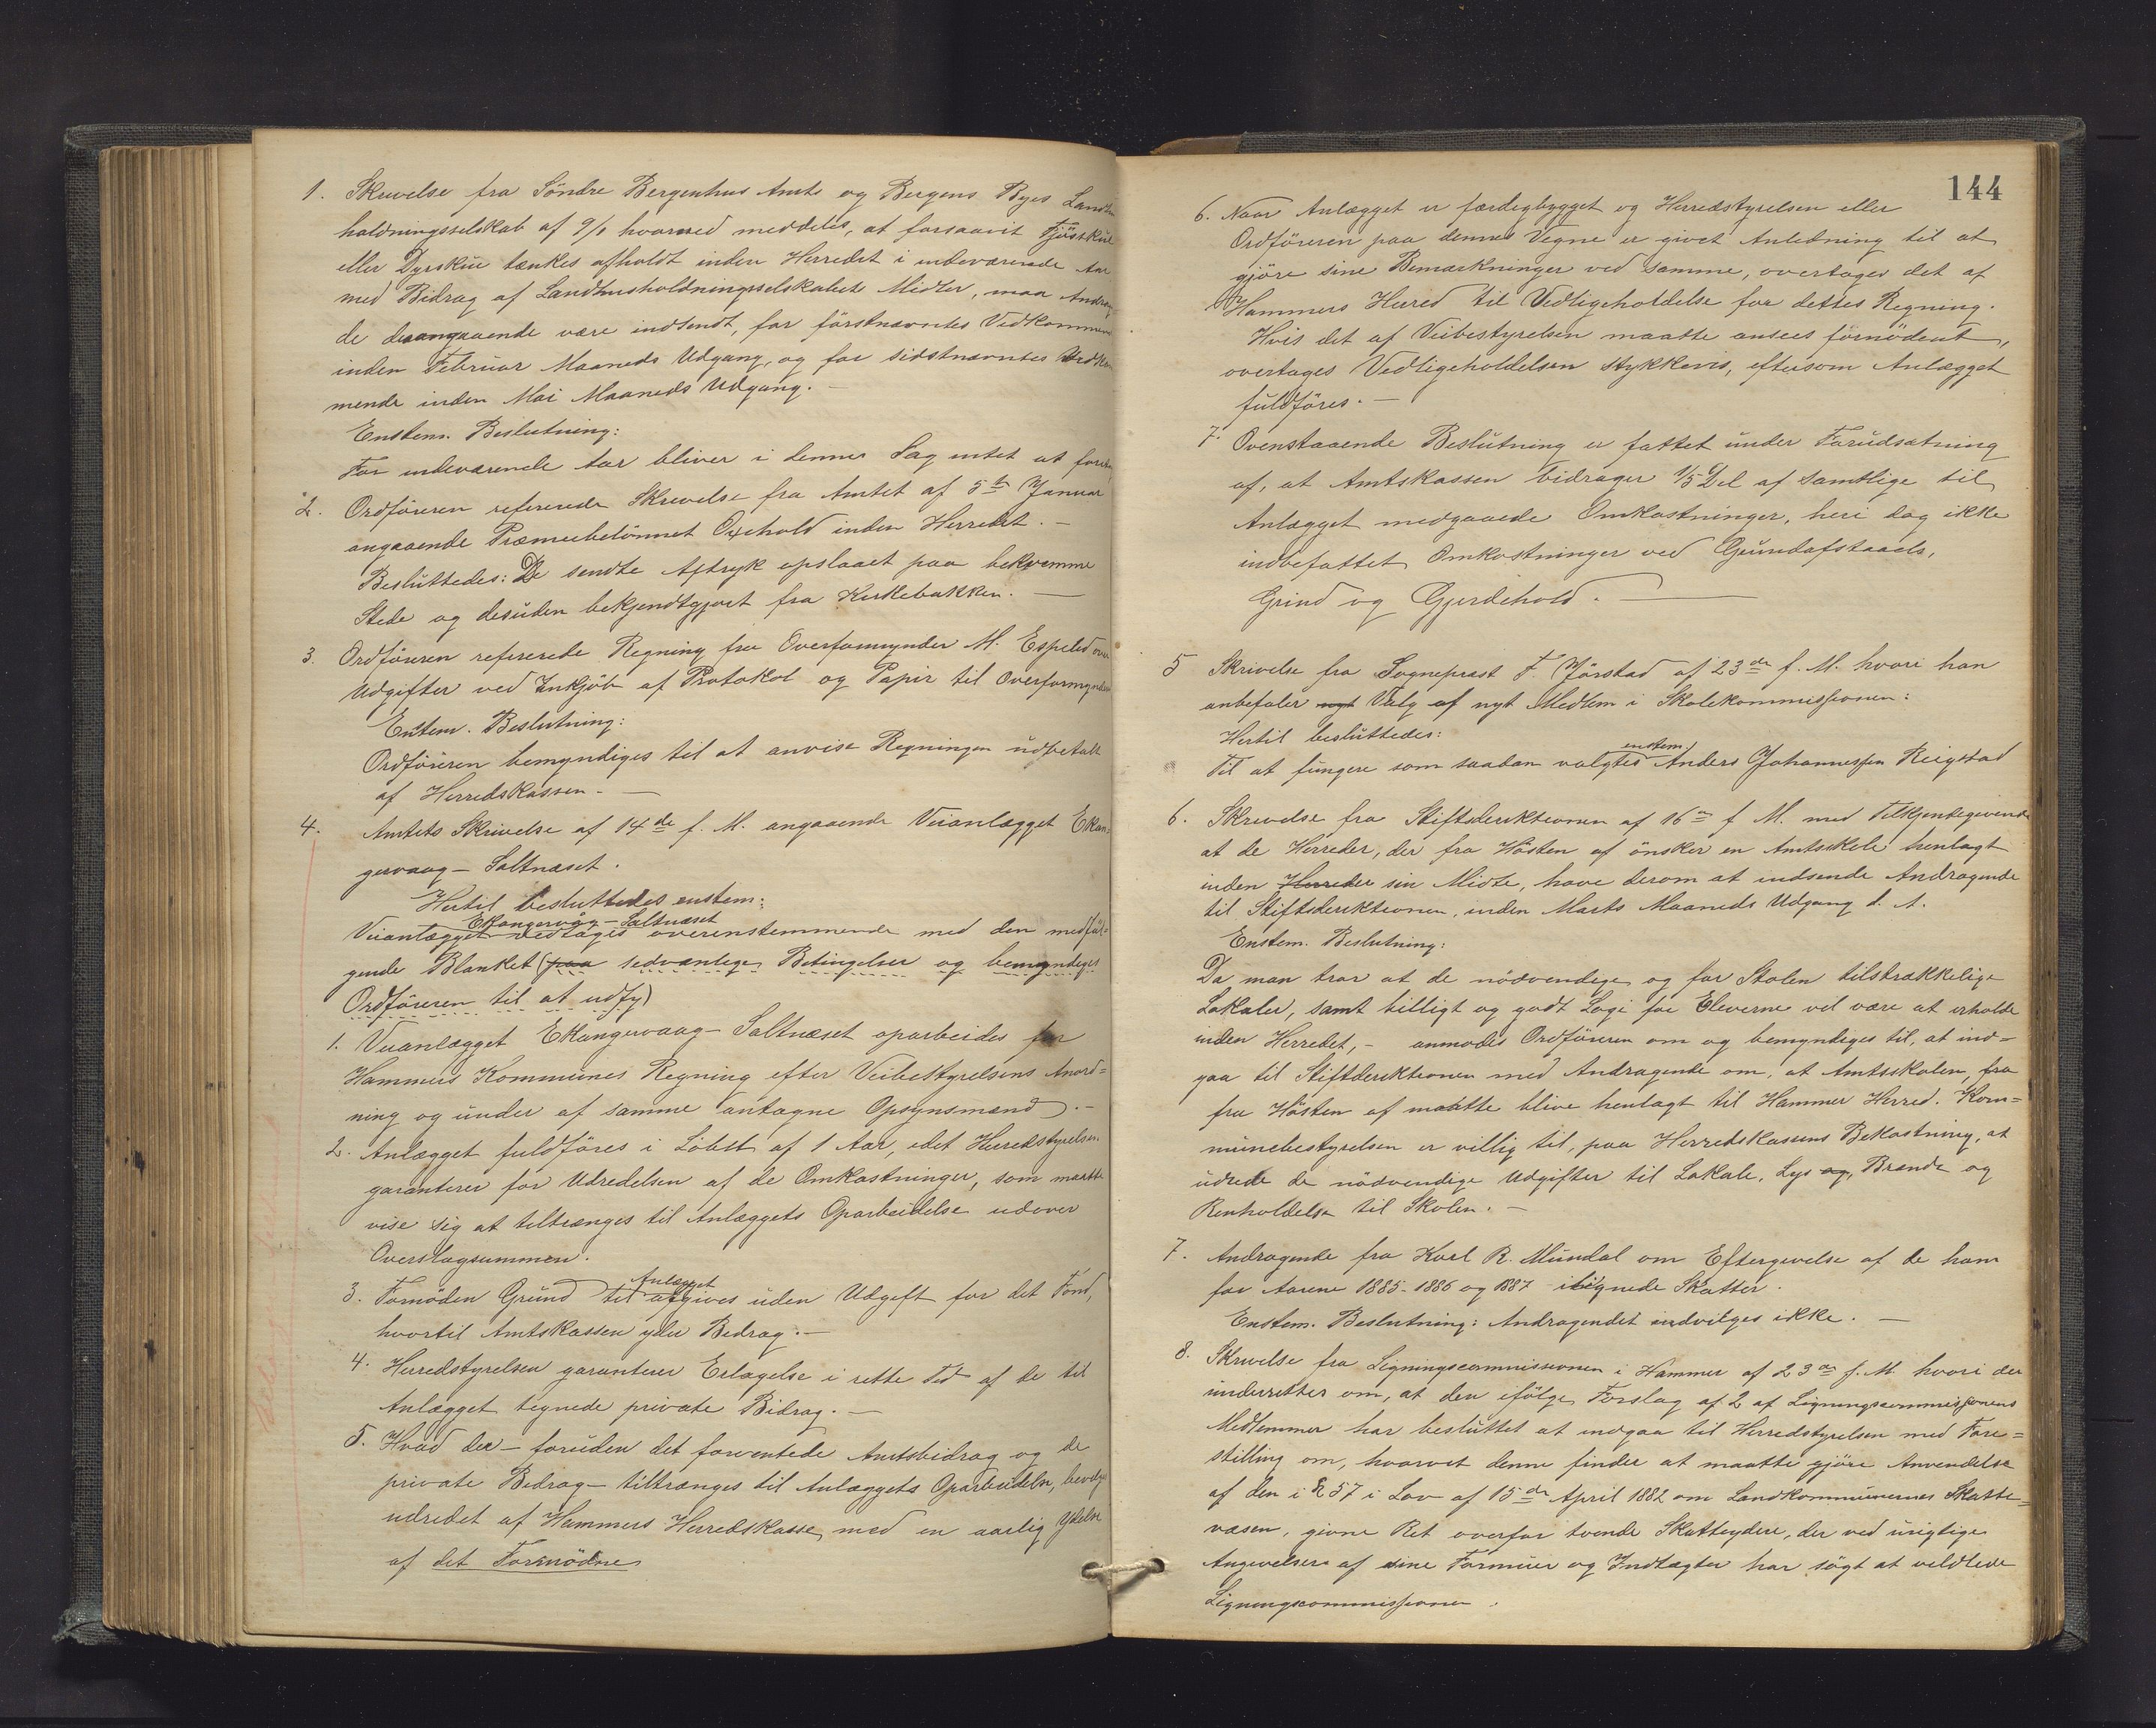 1. Skrivelse fra Söndre Bergenhus Amts og Bergens Byes Landhus
holdningsselskab af 9/1 hvorved meddeles, at forsaavit Fjösskue
eller Dyrskue tænkes afholdt inden Herredet i indeværende Aar
med Bidrag af Landhusholdningsselskabets Midler, maa Andragen
de desangaaende være indsendt, for förstnævntes Vedkommende
inden Februar Maaneds Udgang, og for sidstnævntes Vedkom
mende inden Mai Maaneds Udgang. —
Enstem. Beslutning:
For indeværende Aar bliver i denne Sag intet at foretage
2. Ordföreren refererede Skrivelse fra Amtet af 5te Januar
angaaende Præmiebelönnet Oxehold inden Herredet. —
Besluttedes: De sendte Aftryk opslaaet paa bekvemme
Stede og desuden bekjendtgjort fra Kirkebakken. —
3. Ordföreren refererede Regning fra Overformynder M. Espelid over
Udgifter ved Indkjöb af Protokol og Papir til Overformynderi
Enstem. Beslutning:
Ordföreren bemyndiges til at anvise Regningen udbetalt
af Herredskassen. —
4. Amtets Skrivelse af 14de f. M. angaaende Veianlægget Ekan=
gervaag – Saltnæset.
Hertil besluttedes enstem:
Ekangervåg – Saltnæset
Veianlægget vedtages overenstemmende med den medföl=
gende Blanket (paa sedvanlige Betingelser og bemyndiges
Ordföreren til at udfy)
1. Veianlægget Ekangervaag – Saltnæset oparbeides for
Hammers Kommunes Regning efter Veibestyrelsens Anord=
ning og under af samme antagne Opsynsmænd. —
2. Anlægget fuldföres i Löbet af 1 Aar, idet Herredstyrelsen
garanterer for Udredelsen af de Omkostninger, som maatte
vise sig at tiltrænges til Anlæggets Oparbeidelse udover
Overslagsummen.
Anlægget
3. Fornöden Grund til afgives uden Udgift for det Fond,
hvortil Amtskassen yder Bidrag. —
4. Herredstyrelsen garanterer Erlægelse i rette Tid af de til
Anlægget tegnede private Bidrag. —
5. Hvad der – foruden det forventede Amtsbidrag og de
private Bidrag – tiltrænges til Anlæggets Oparbeidelse, bevilges
udredet af Hammers Herredskasse, med en aarlig Ydelse
af det Fornödne
144
6. Naar Anlægget er færdigbygget og Herredstyrelsen eller
Ordföreren paa dennes Vegne er givet Anledning til at
gjöre sine Bemærkninger ved samme, overtages det af
Hammers Herred til Vedligeholdelse for dettes Regning.
Hvis det af Veibestyrelsen maatte ansees fornödent,
overtages Vedligeholdelsen stykkevis, eftersom Anlægget
fuldföres. —
7. Ovenstaaende Beslutning er fattet under Forudsætning
af, at Amtskassen bidrager 1/5 Del af samtlige til
Anlægget medgaaede Omkostninger, heri dog ikke
indbefattet Omkostninger ved Grundafstaaels,
Grind og Gjerdehold. —
5 Skrivelse fra Sogneprest F. Jörstad af 23de f. M. hvori han
anbefaler nyt Valg af nyt Medlem i Skolekommissionen:
Hertil besluttedes:
enstem.
Til at fungere som saadan valgtes Anders Johannessen Reigstad
6. Skrivelse fra Stiftsdirektionen af 16de f. M. med Tilkjendegivende
at de Herreder, der fra Hösten af önsker en Amtsskole henlagt
inden Herreder sin Midte, have derom at indsende Andragende
til Stiftsdirektionen, inden Marts Maaneds Udgang d. A.
Enstem. Beslutning:
Da man tror at de nödvendige og for Skolen tilstrækkelige
Lokaler, samt billigt og godt Logi for Eleverne vil være at erholde
inden Herredet, – anmodes Ordföreren om og bemyndiges til, at ind=
gaa til Stiftdirektionen med Andragende om, at Amtsskolen, fra
fra Hösten af maatte blive henlagt til Hammer Herred. Kom=
munebestyrelsen er villig til, paa Herredskassens Bekostning, at
udrede de nödvendige Udgifter til Lokale, Lys og, Brænde og
Renholdelse til Skolen. —
7. Andragende fra Karl R. Mundal om Eftergivelse af de ham
for Aarene 1885–1886 og 1887 ilignede Skatter.
Enstem. Beslutning: Andragendet indvilges ikke. —
8. Skrivelse fra Ligningscommissionen i Hammer af 23de f. M. hvori der
underrettes om, at den ifölge Forslag af 2 af Ligningscommissionens
Medlemmer har besluttet at indgaa til Herredstyrelsen med Fore=
stilling om, hvorvit denne finder at maatte gjöre Anvendelse
af den i § 57 i Lov af 15de April 1882 om Landkommunernes Skatte=
væsen, givne Ret overfor tvende Skatteydere, der ved urigtige
Angivelser af sine Formuer og Indtægter har sögt at vildlede
Ligningscommissionen.